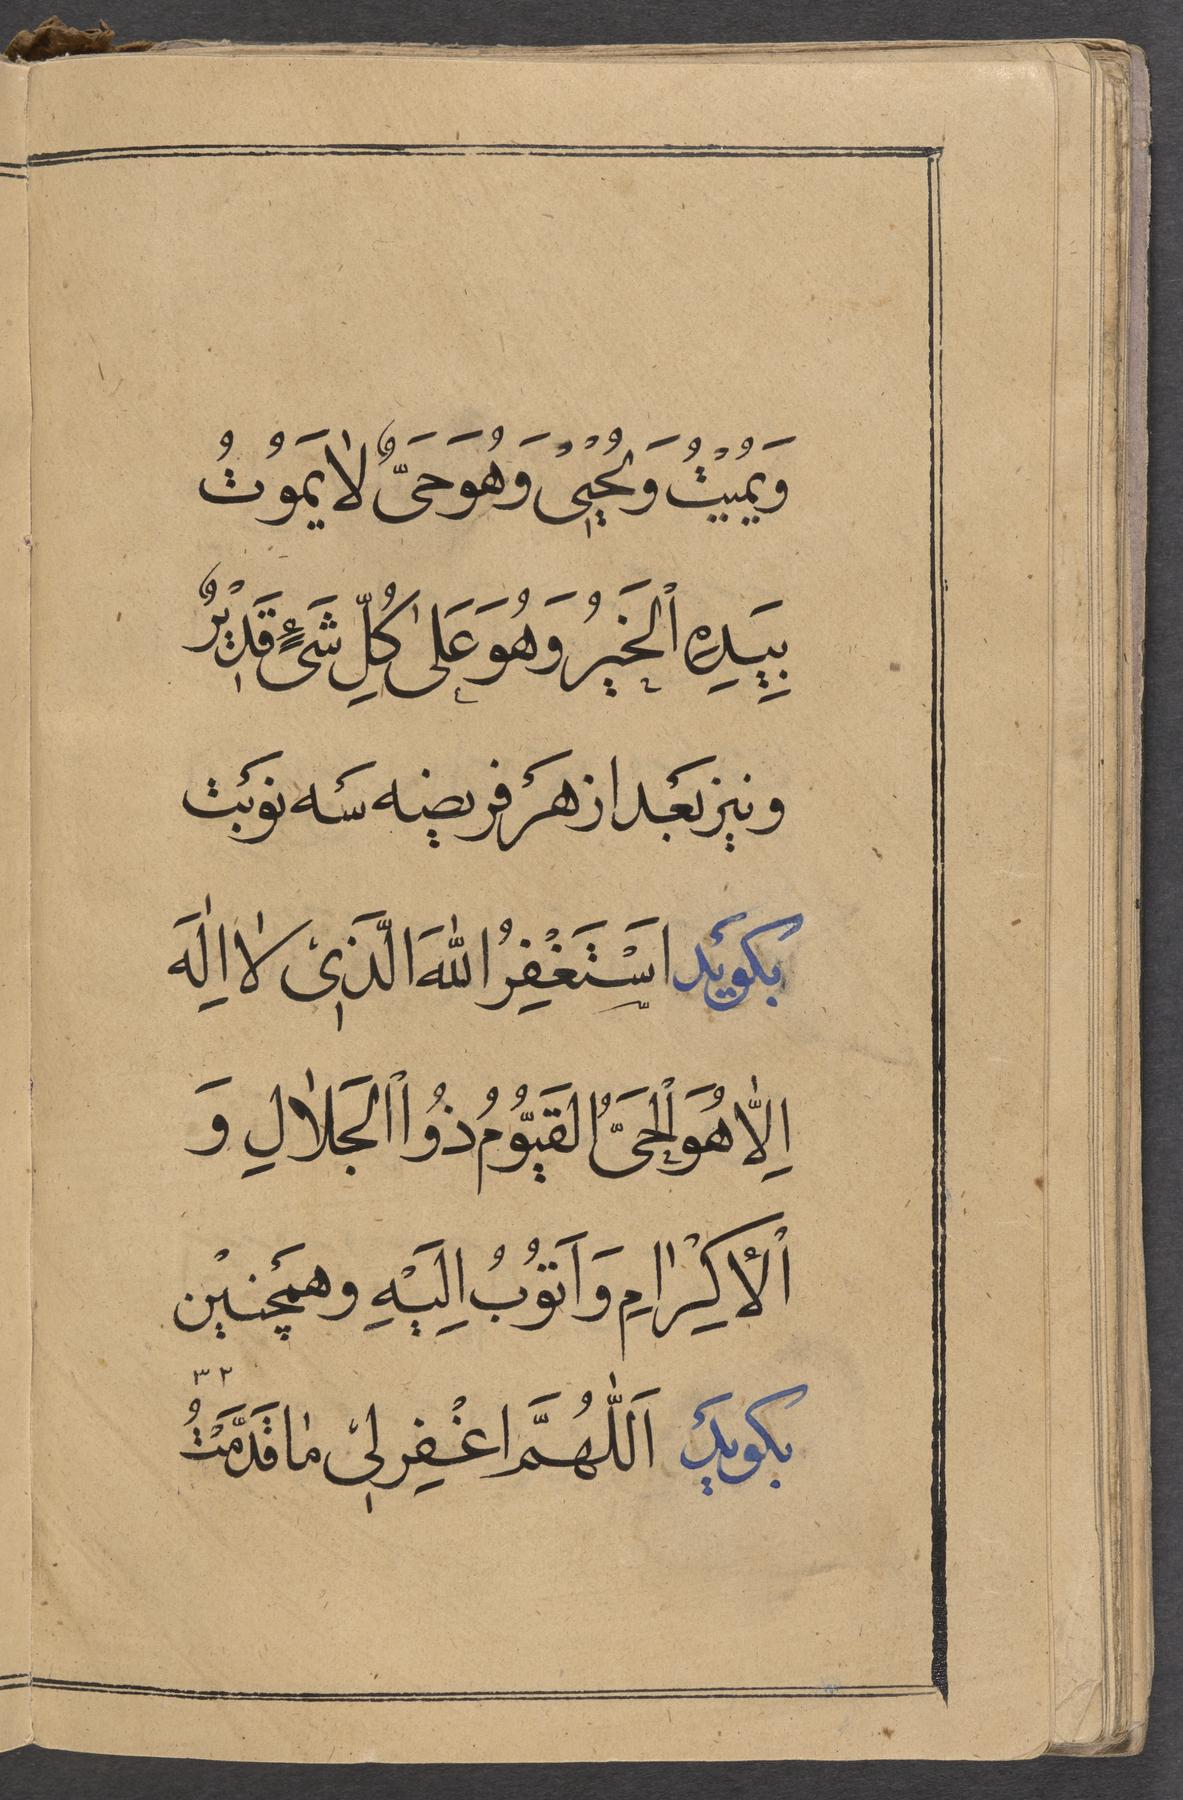 وَيُمِيْتُ وَيُحْيِىْ وَهُوَ حَىٌّ لَا يَمَوُتُ
بِيَدِهِ ٱلْخَيرُ وَهُوَ عَلىٰ كُلِّ شَىْءٍ قَدِيْرٌ
و نيز بعَد از هرَ فريضه سَه نوبَت
بكويَد اسْتَغْفِرُ اللّٰهَ الَّذِىْ لَا اِلٰهَ
اِلَّا هُوَ ٱلْحَىُّ القَيُّوُمُ ذُوا الْجَلَالِ وَ
ٱلْأِكْرٰامِ وَ اَتوُبُ اِلَيْهِ و همَچنيْن
بكويدَ اَللّٰهُمَّ اغْفِر لىْ مٰا قَدَّمْتُ
٢ ٣